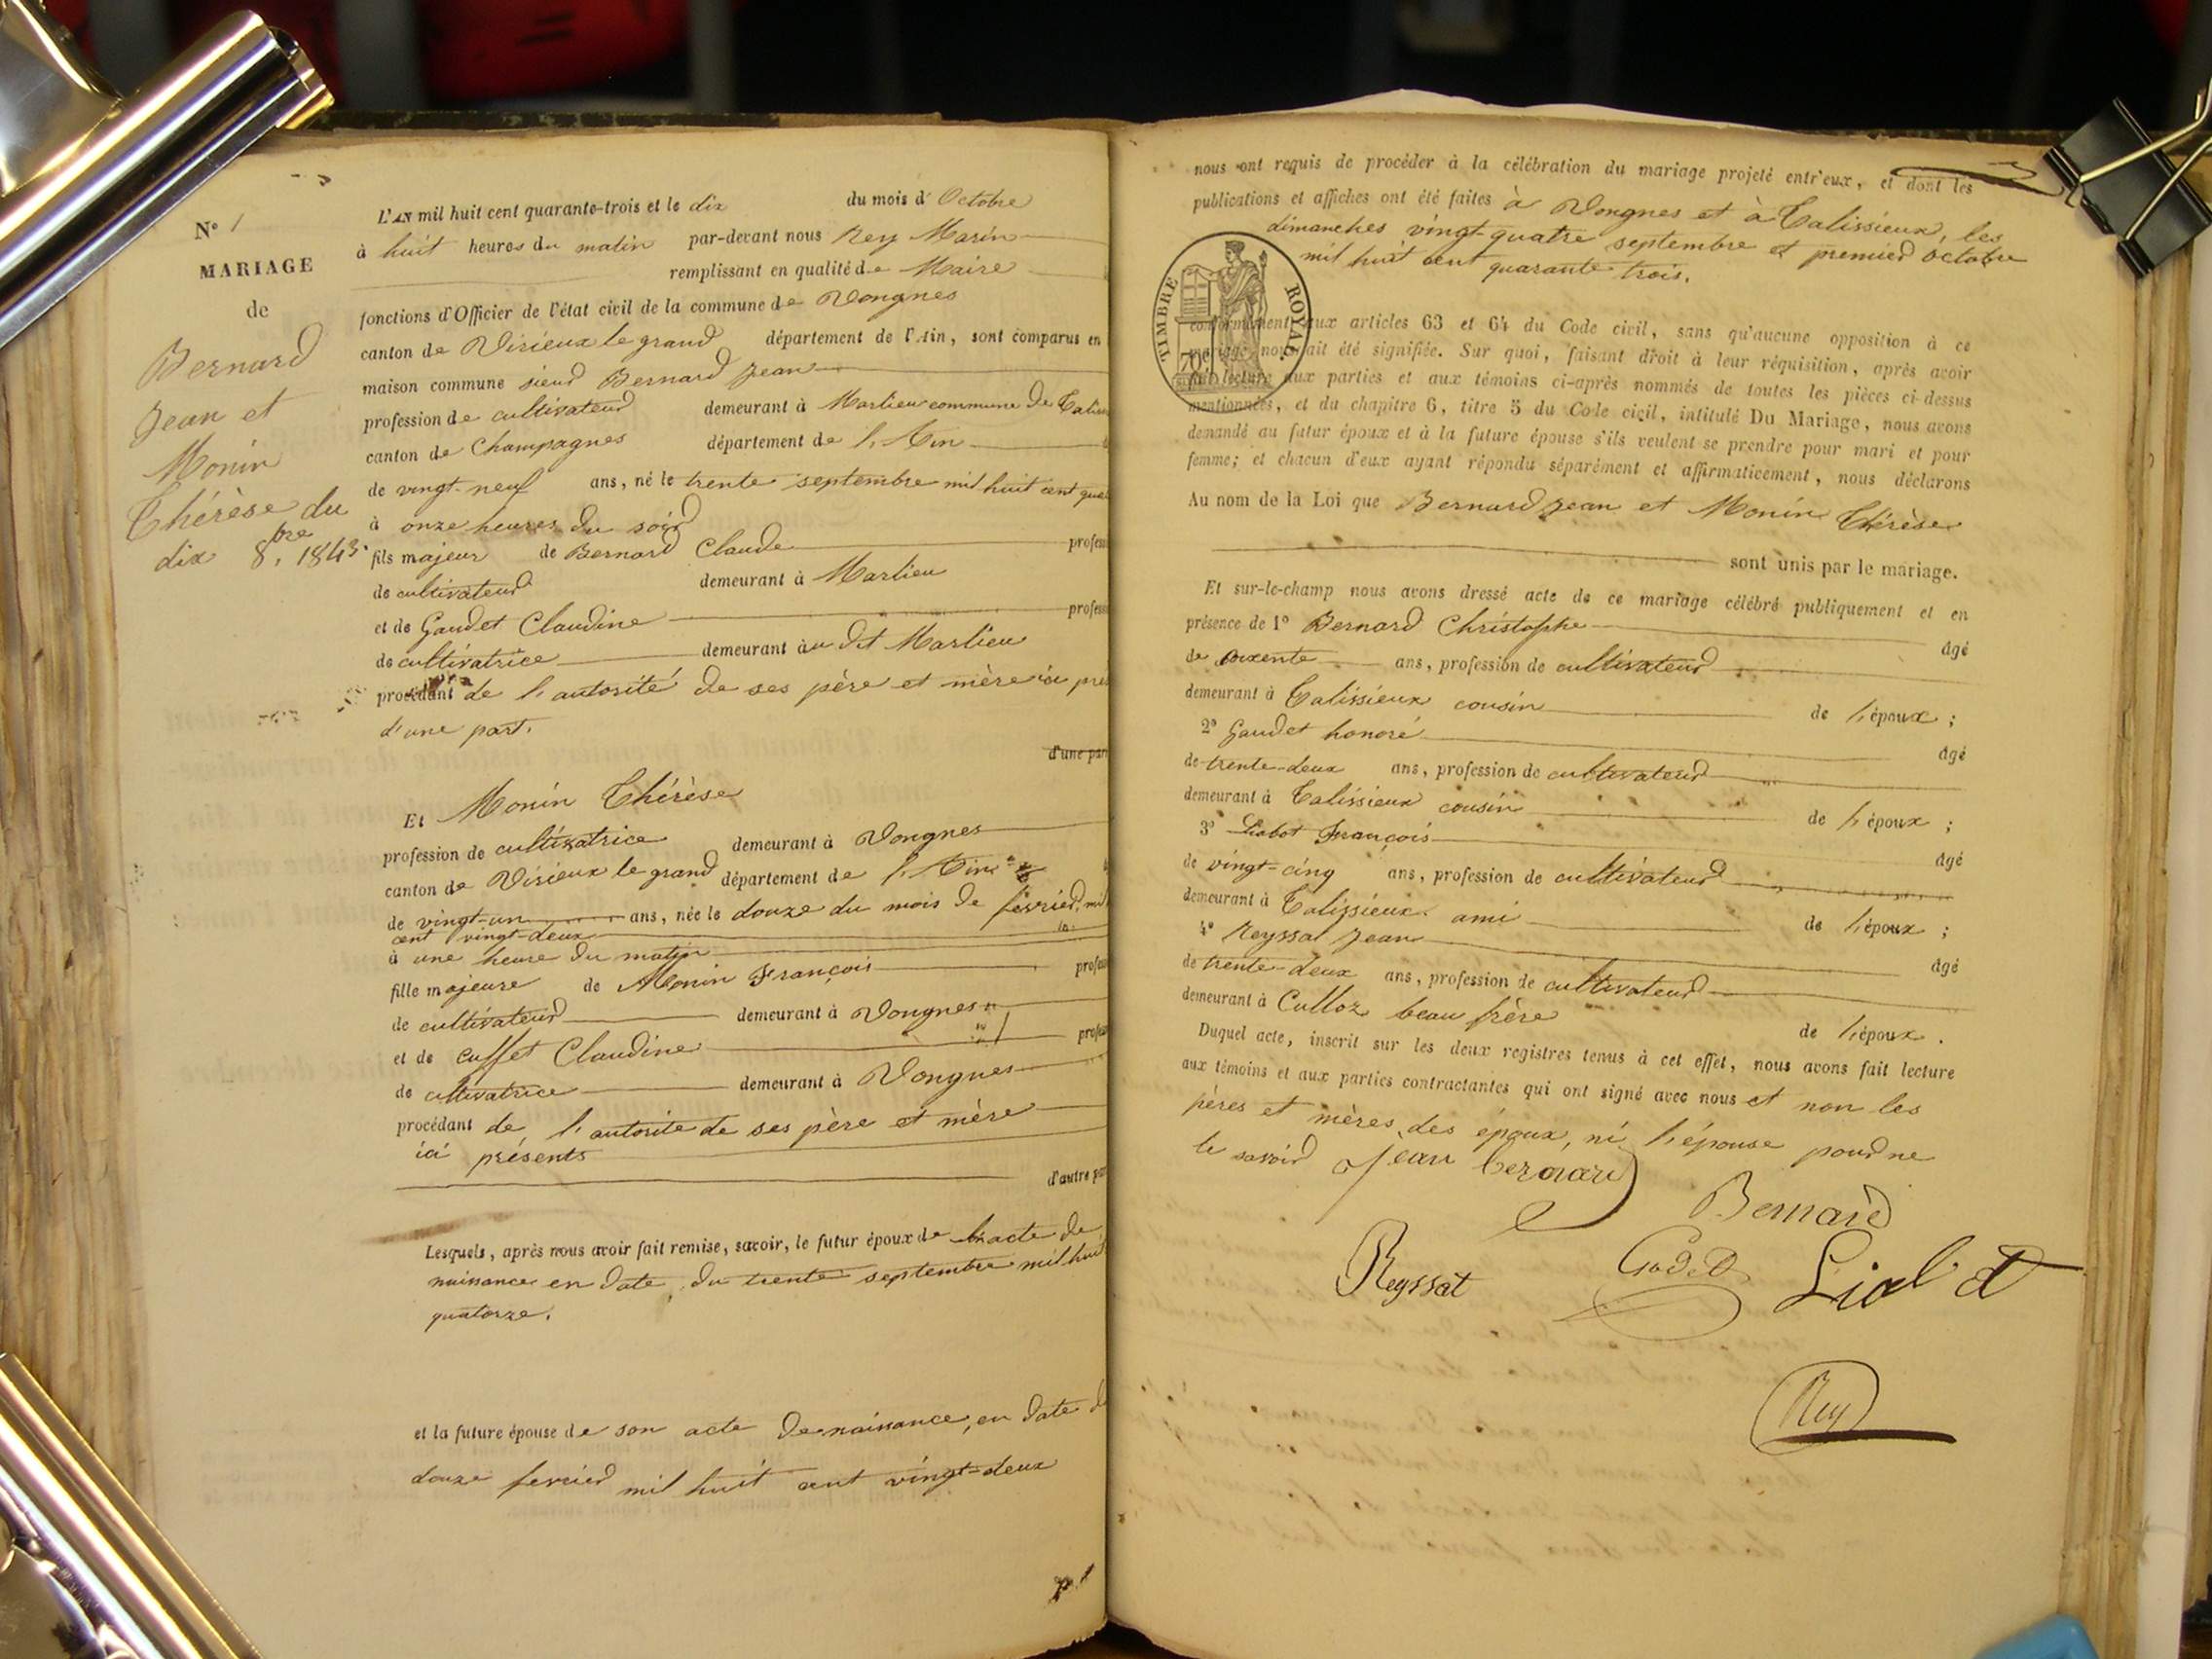 N° 1
MARIAGE
de
Bernard
Jean et
Monin
Thérèse du
dix 8.bre 1843.
L'AN mil huit cent quarante-trois et le dix du mois d'Octobre
à huit heures du matin par-devant nous Rey Marin
remplissant en qualité de Maire
fonctions d'Officier de l'état civil de la commune de Vongnes
canton de Virieux le grand département de l'Ain, sont comparus en
maison commune sieur Bernard Jean
profession de cultivateur demeurant à Marlieu commune de Taliss
canton de Champagnes département de l'Ain
de vingt-neuf ans, né le trente septembre mil huit cent qua
à onze heures du soir
fils majeur de Bernard Claude profes
de cultivateur demeurant à Marlieu
et de Gaudet Claudine profess
de cultivatrice demeurant au dit Marlieu
procédant de l'autorité de ses père et mère ici pré
d'une part.
d'une par
Et Monin Thérèse
profession de cultivatrice demeurant à Vongnes
canton de Virieux le grand département de l'Ain
de vingt-un ans, née le douze du mois de février, mil
cent vingt-deux
à une heure du matin
fille majeure de Monin François profes
de cultivateur demeurant à Vongnes
et de Cuffet Claudine profes
de cultivatrice demeurant à Vongnes
procédant de l'autorité de ses père et mère
ici présents
d'autre par
Lesquels, après nous avoir fait remise, savoir, le futur époux de acte de
naissance en date du trente septembre mil huit
quatorze.
et la future épouse de son acte de naissance, en date d
douze fevrier mil huit cent vingt-deux
nous ont requis de procéder à la célébration du mariage projeté entr'eux, et dont les
publications et affiches ont été faites à Vongnes et à Talissieux, les
dimanches vingt-quatre septembre et premier Octobre
mil huit cent quarante trois.
TIMBRE ROYAL
70
conformément aux articles 63 et 64 du Code civil, sans qu'aucune opposition à ce
mariage nous ait été signifiée. Sur quoi, faisant droit à leur réquisition, après avoir
fait lecture aux parties et aux témoins ci-après nommés de toutes les pièces ci-dessus
mentionnées, et du chapitre 6, titre 5 du Code civil, intitulé Du Mariage, nous avons
demandé au futur époux et à la future épouse s'ils veulent se prendre pour mari et pour
femme; et chacun d'eux ayant répondu séparément et affirmativement, nous déclarons
Au nom de la Loi que Bernard Jean et Monin Thérèse
sont unis par le mariage.
Et sur-le-champ nous avons dressé acte de ce mariage célébré publiquement et en
présence de 1° Bernard Christophe âgé
de ans, profession de cultivateur
demeurant à Talissieux cousin de l'époux ;
2° Gaudet honoré âgé
de trente-deux ans, profession de cultivateur
demeurant à Talissieux cousin de l'époux ;
3° Liabot François âgé
de vingt-cinq ans, profession de cultivateur
demeurant à Talissieux ami de l'époux ;
4° Reyssat Jean âgé
de trente-deux ans, profession de cultivateur
demeurant à Culloz beau frère de l'époux.
Duquel acte, inscrit sur les deux registres tenus à cet effet, nous avons fait lecture
aux témoins et aux parties contractantes qui ont signé avec nous et non les
pères et mères des époux, ni l'épouse pour ne
le savoir Jean bernard
Bernard
Reyssat Godet
Rey